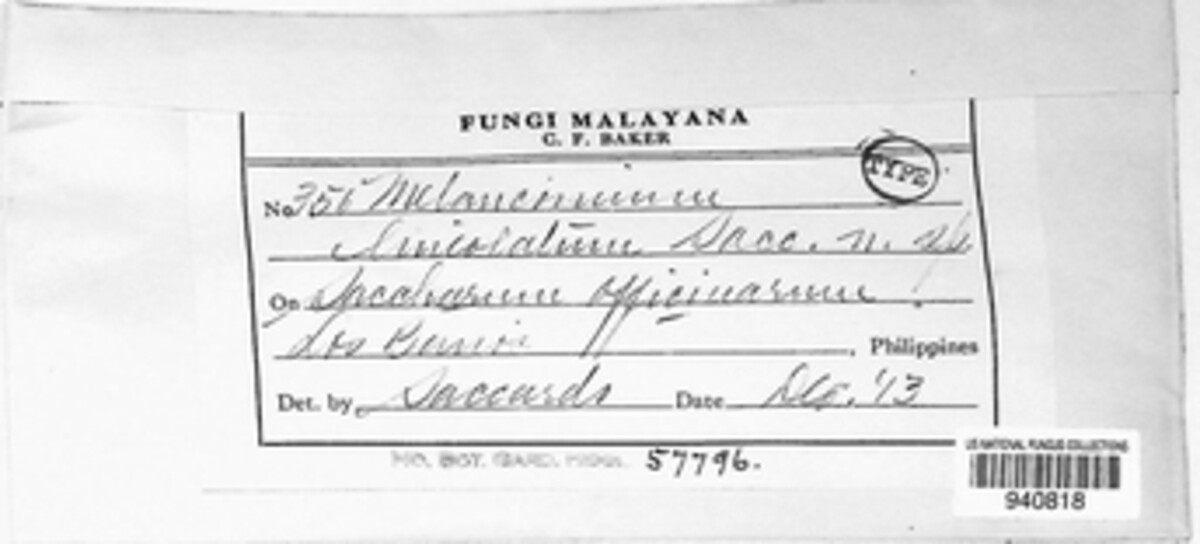 FUNGI MALAYANA
C. F. BAKER
TYPE
No. 351 Melanconium
lineolatum Sacc. n. sp.
On Saccharum officinarum
Los Banos, Philippines
Det. by Saccardo Date Dec. '13
MO. BOT. GARD. HERB. 57796.
US NATIONAL FUNGUS COLLECTIONS
940818